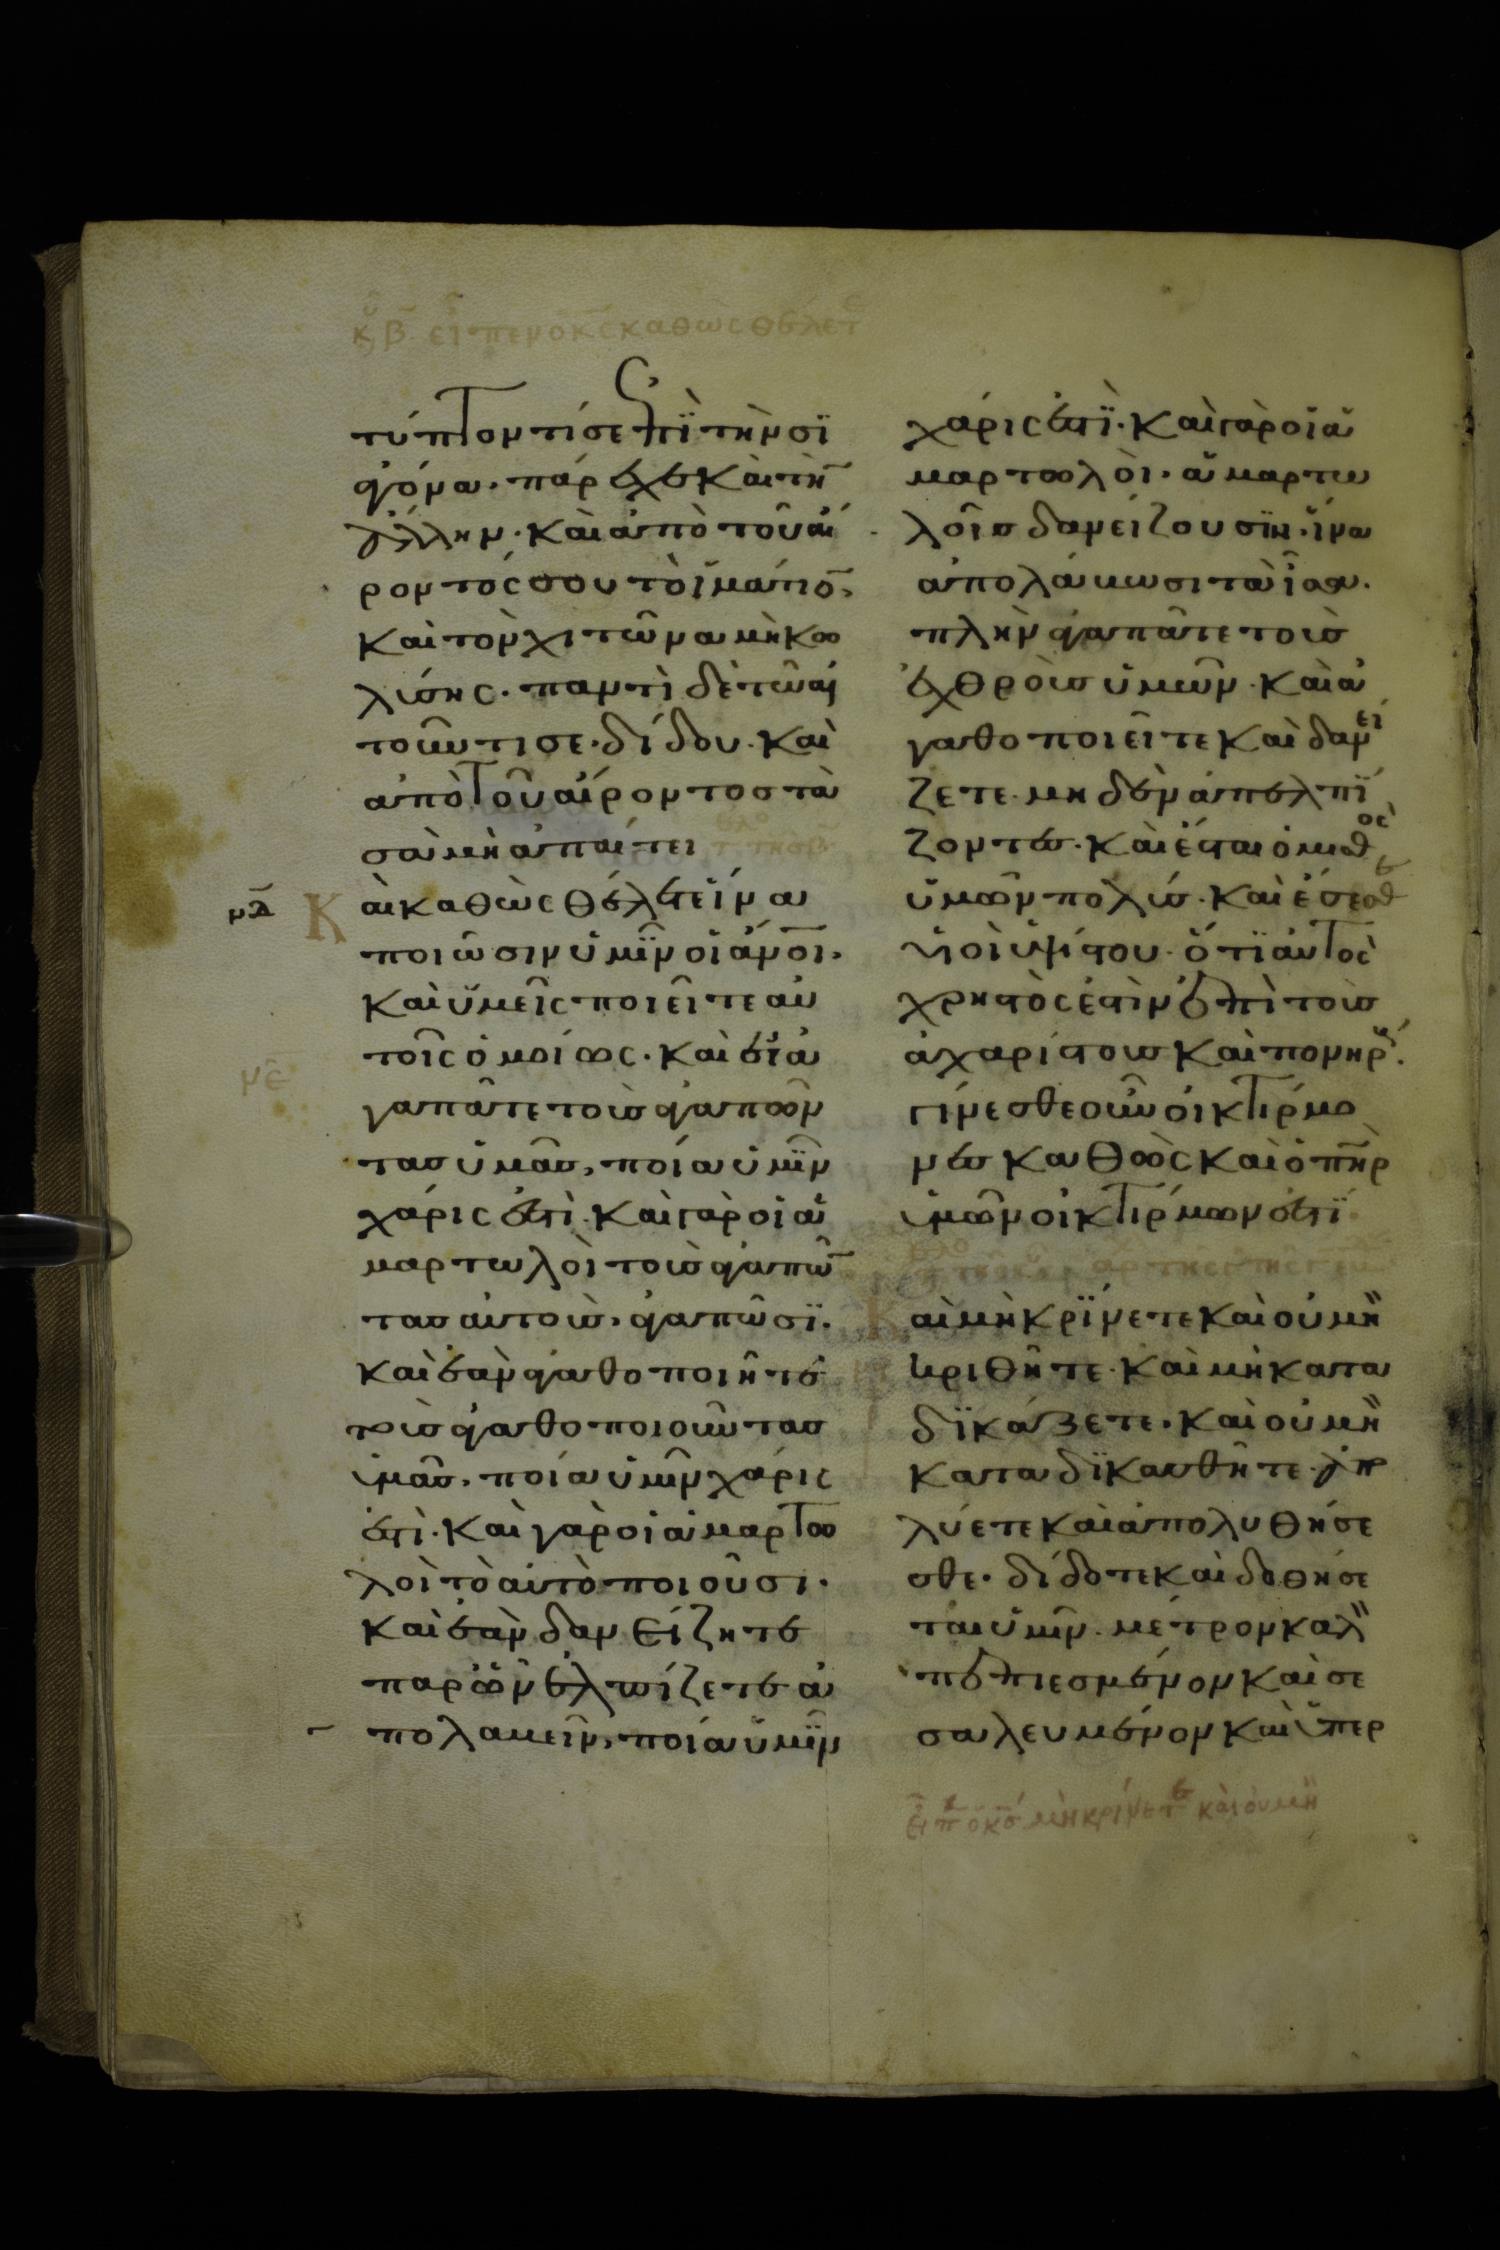 κυ β εἶπεν ὁ κς καθὼς θέλετε
τύπτοντί σε ἐπῒ τὴν σϊ
αγόνα· πάρεχε καὶ τὴν
ἄλλην· καὶ ἀπὸ τοῦ αἴ
ροντός σου τὸ ἱμάτιο̄,
καὶ τὸν χιτῶνα μὴ κω
λύσης· παντὶ δὲ τῶ αἰ
τοῦντι σε· δίδου· καὶ
ἀπὸ τοῦ αἴροντος τὰ
σὰ μὴ ἀπαίτει
μδ
Καὶ καθὼς θέλετε ἵνα
ποιῶσιν ὑμῖν οἱ ἄνοι·
καὶ ὑμεῖς ποιεῖτε αὐ
τοῖς ὁμοίως· καὶ εἰ ἀ
με
γαπᾶτε τοὺς ἀγαπῶν
τας ὑμᾶς, ποία ὑμῖν
χάρις ἐστὶ· καὶ γὰρ οἱ ἁ
μαρτωλοὶ τοὺς ἀγαπῶ̄
τας αὐτοὺς· ἀγαπῶσϊ·
καὶ ἐὰν ἀγαθοποιῆτε
τοὺς ἀγαθοποιοῦντας
ὑμᾶς, ποία ὑμῖν χάρις
ἐστὶ· καὶ γὰρ οἱ ἁμαρτω
λοὶ τὸ αὐτὸ ποιοῦσι·
καὶ ἐὰν δανείζητε
παρ ὧν ἐλπίζετε ἀ
πολαβεῖν, ποία ὑμῖν
χάρις ἐστῒ· καὶ γὰρ οἱ ἁ
μαρτωλοὶ· ἁμαρτω
λοῖς δανείζουσϊν· ἵνα
ἀπολάβωσι τὰ ἶσα·
πλὴν ἀγαπᾶτε τοὺς
ἐχθροὺς ὑμῶν· καὶ ἀ
γαθοποιεῖτε καὶ δανεί
ζετε· μηδὲν ἀπελπΐ
ζοντες· καὶ ἔσται ὁ μισθὸς
ὑμῶν πολύς· καὶ ἔσεσθε
υἱοὶ ὑψίστου· ὅτϊ αὐτὸς
χρηστὸς ἐστὶν ἐπὶ τοὺς
ἀχαρίστους καὶ πονηρούς·
γίνεσθε οὖν οἰκτίρμο
νες καθὼς καὶ ὁ πηρ
ὑμῶν οἰκτίρμων ἐστΐ
Καὶ μὴ κρϊνετε καὶ οὐ μὴ
κριθῆτε· καὶ μὴ κατα
δϊκάζετε· καὶ οὐ μὴ
καταδϊκασθῆτε· ἀπο
λύετε καὶ ἀπολυθήσε
σθε· δίδοτε καὶ δοθήσε
ται ὑμῖν· μέτρον καλὸ
πεπιεσμένον καὶ σε
σαλευμένον καὶ ὑπερ
εἶπ ὁ κς μὴ κρίνετε καὶ οὐ μὴ